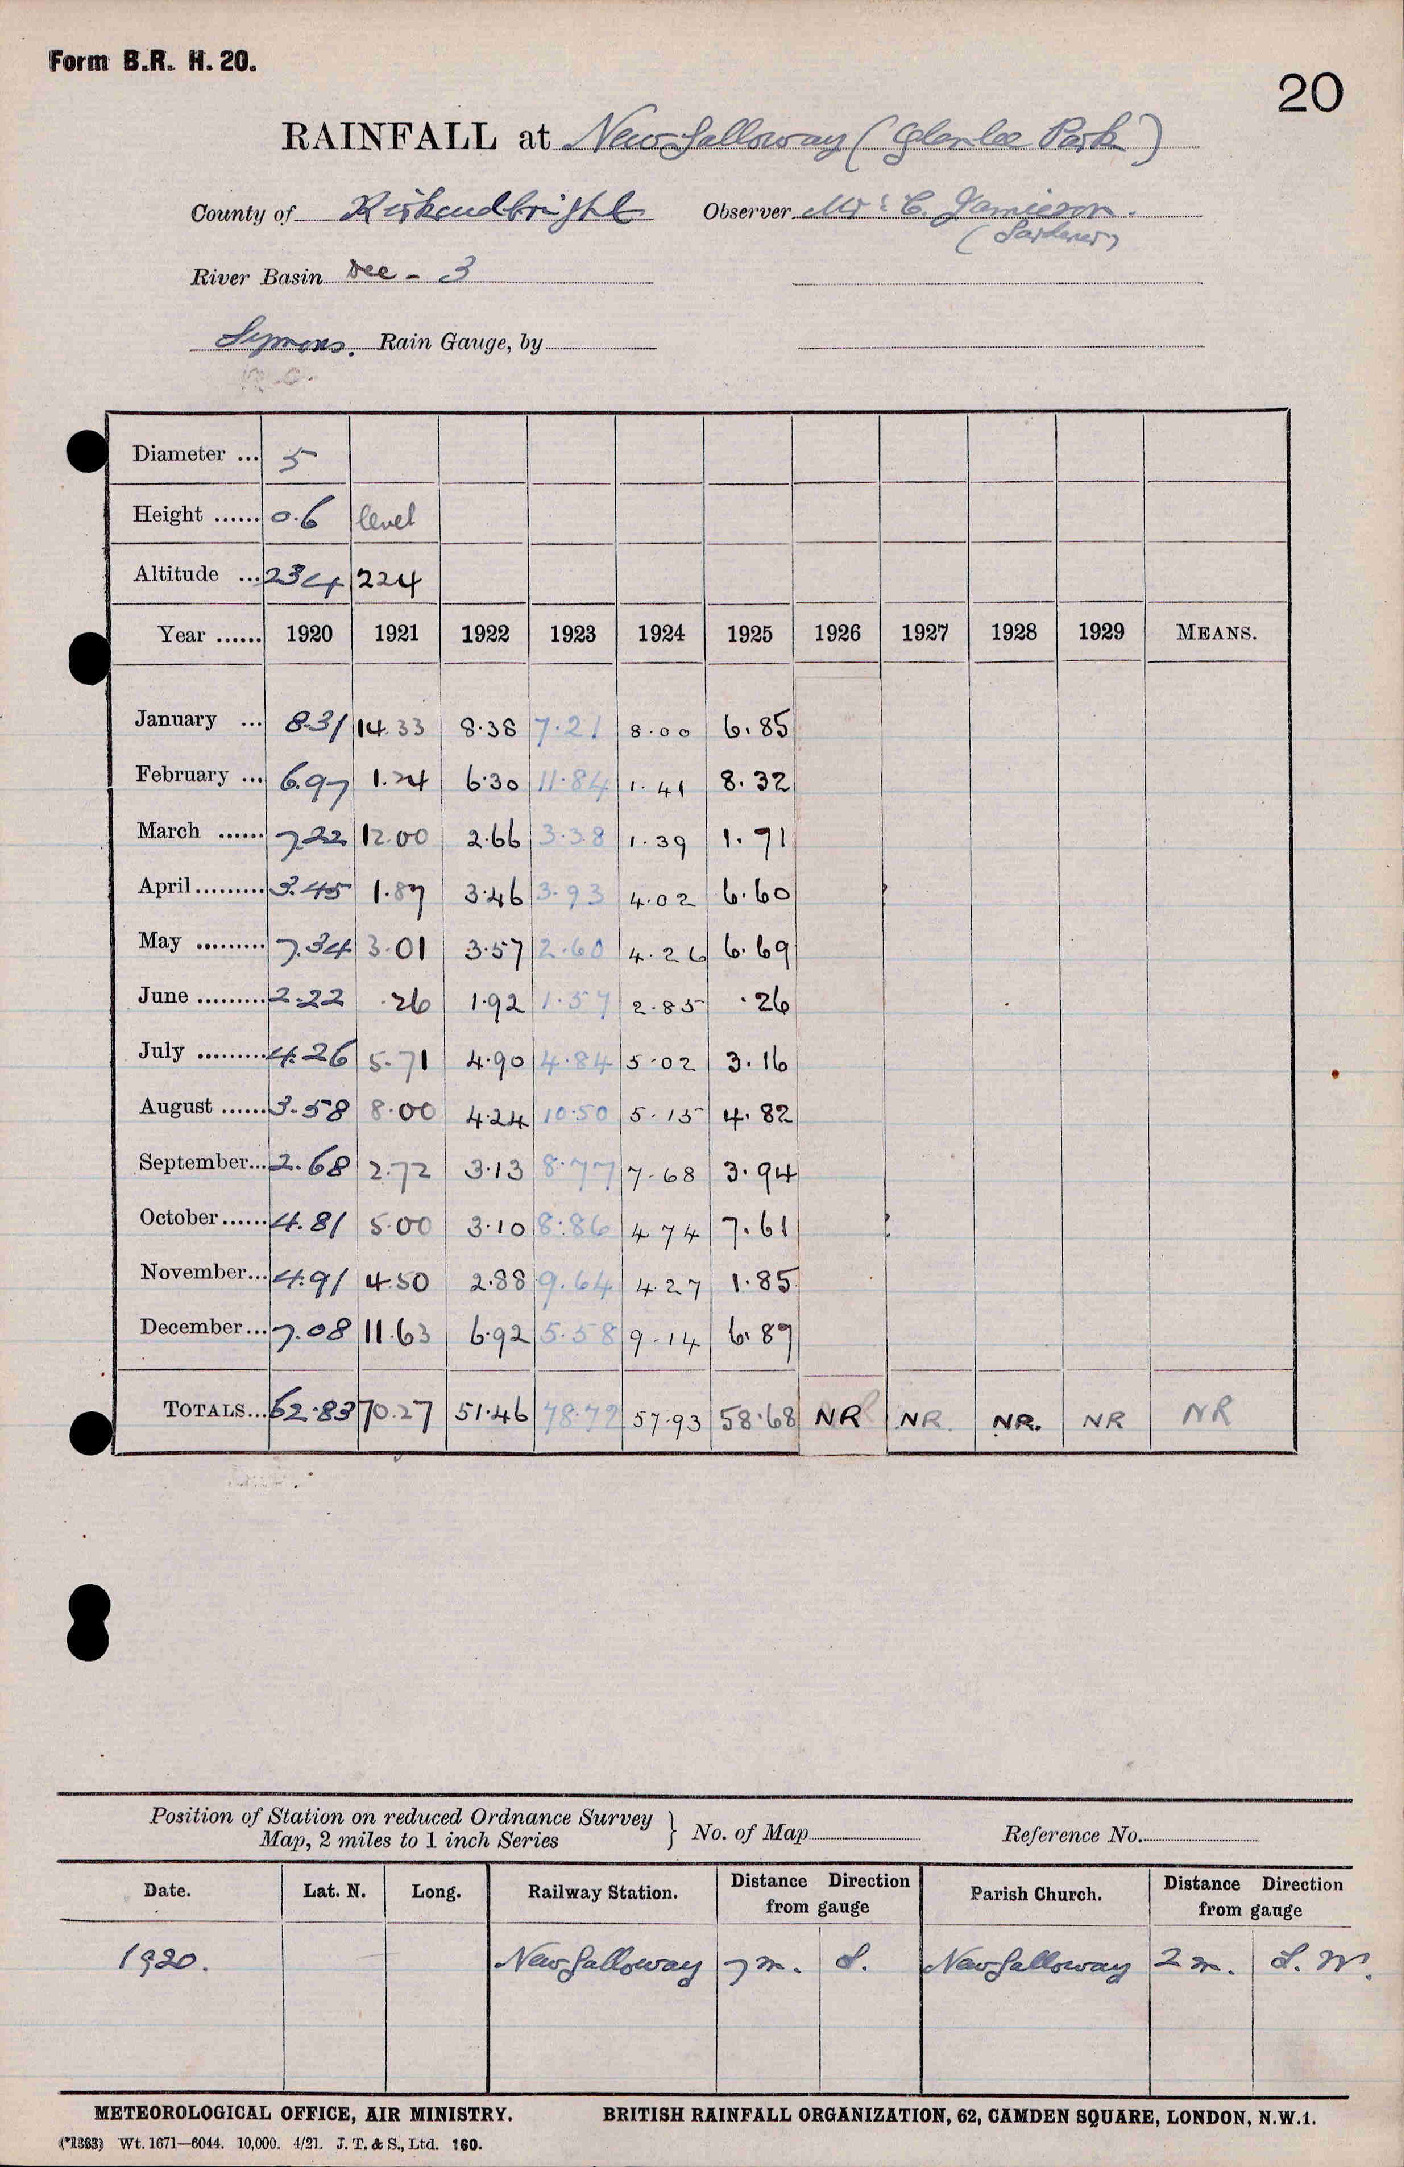 Form B.R. H. 20.
20
RAINFALL at New Galloway (Glenlee Park)
County of Kirkcudbright Observer Mr. C. Jamieson.
(Gardener)
River Basin Dee - 3
Symons. Rain Gauge, by
Diameter ... 5
Height ...... 0.6 level
Altitude ... 234 224
Year ...... 1920 1921 1922 1923 1924 1925 1926 1927 1928 1929 MEANS.
January ... 8.31 14.33 8.38 7.21 8.00 6.85
February ... 6.97 1.24 6.30 11.84 1.41 8.32
March ...... 7.22 12.00 2.66 3.38 1.39 1.71
April ......... 3.45 1.87 3.46 3.93 4.02 6.60
May ......... 7.34 3.01 3.57 2.60 4.26 6.69
June ......... 2.22 .26 1.92 1.57 2.85 .26
July ......... 4.26 5.71 4.90 4.84 5.02 3.16
August ...... 3.58 8.00 4.24 10.50 5.15 4.82
September... 2.68 2.72 3.13 8.77 7.68 3.94
October...... 4.81 5.00 3.10 8.86 4.74 7.61
November... 4.91 4.50 2.88 9.64 4.27 1.85
December... 7.08 11.63 6.92 5.58 9.14 6.87
TOTALS... 62.83 70.27 51.46 78.72 57.93 58.68 NR NR. NR. NR NR
Position of Station on reduced Ordnance Survey
Map, 2 miles to 1 inch Series } No. of Map Reference No.
Date. Lat. N. Long. Railway Station. Distance Direction from gauge Parish Church. Distance Direction from gauge
1920. New Galloway 7 m. S. New Galloway 2 m. S.W.
METEOROLOGICAL OFFICE, AIR MINISTRY. BRITISH RAINFALL ORGANIZATION, 62, CAMDEN SQUARE, LONDON, N.W.1.
(*1383) Wt. 1671—6044. 10,000. 4/21. J. T. & S., Ltd. 160.